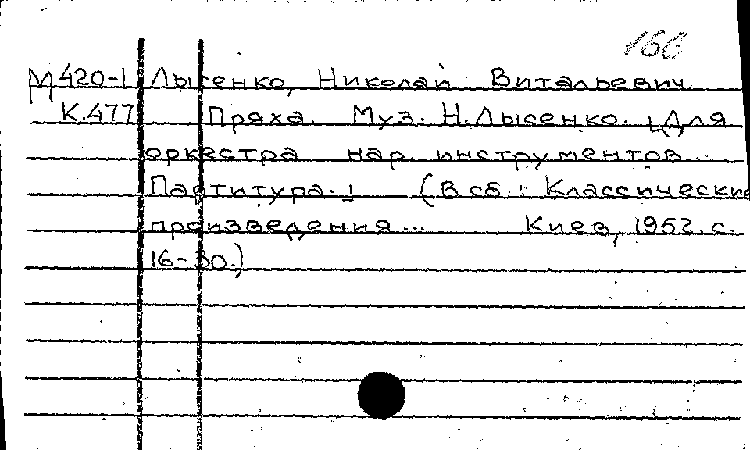 166
М420-1 Лысенко, Николай Витальевич
К.477 Пряха. Муз. Н.Лысенко. [Для
оркестра нар. инструментов...
Партитура.] (В сб.: Классические
произведения... Киев, 1952. с.
16-30.)